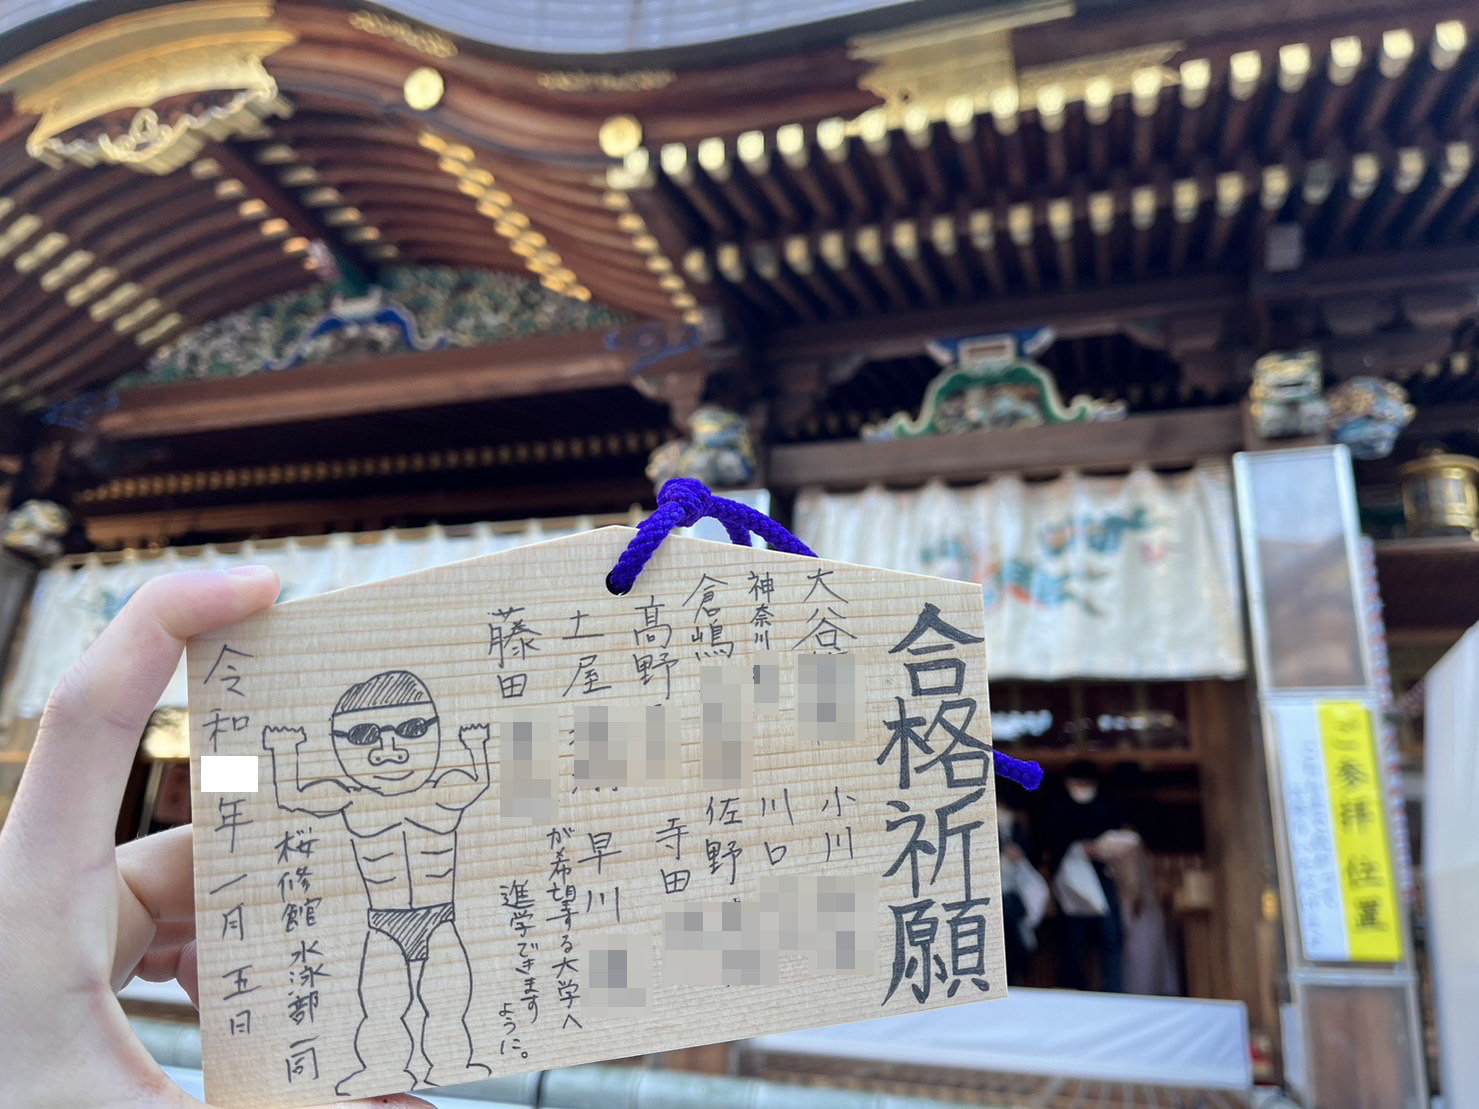 合格祈願
大谷
神奈川
倉嶋
高野
土屋
藤田
小川
川口
佐野
寺田
早川
が希望する大学へ
進学できます
ように。
桜修館水泳部一同
令和
年一月五日
ご参拝位置